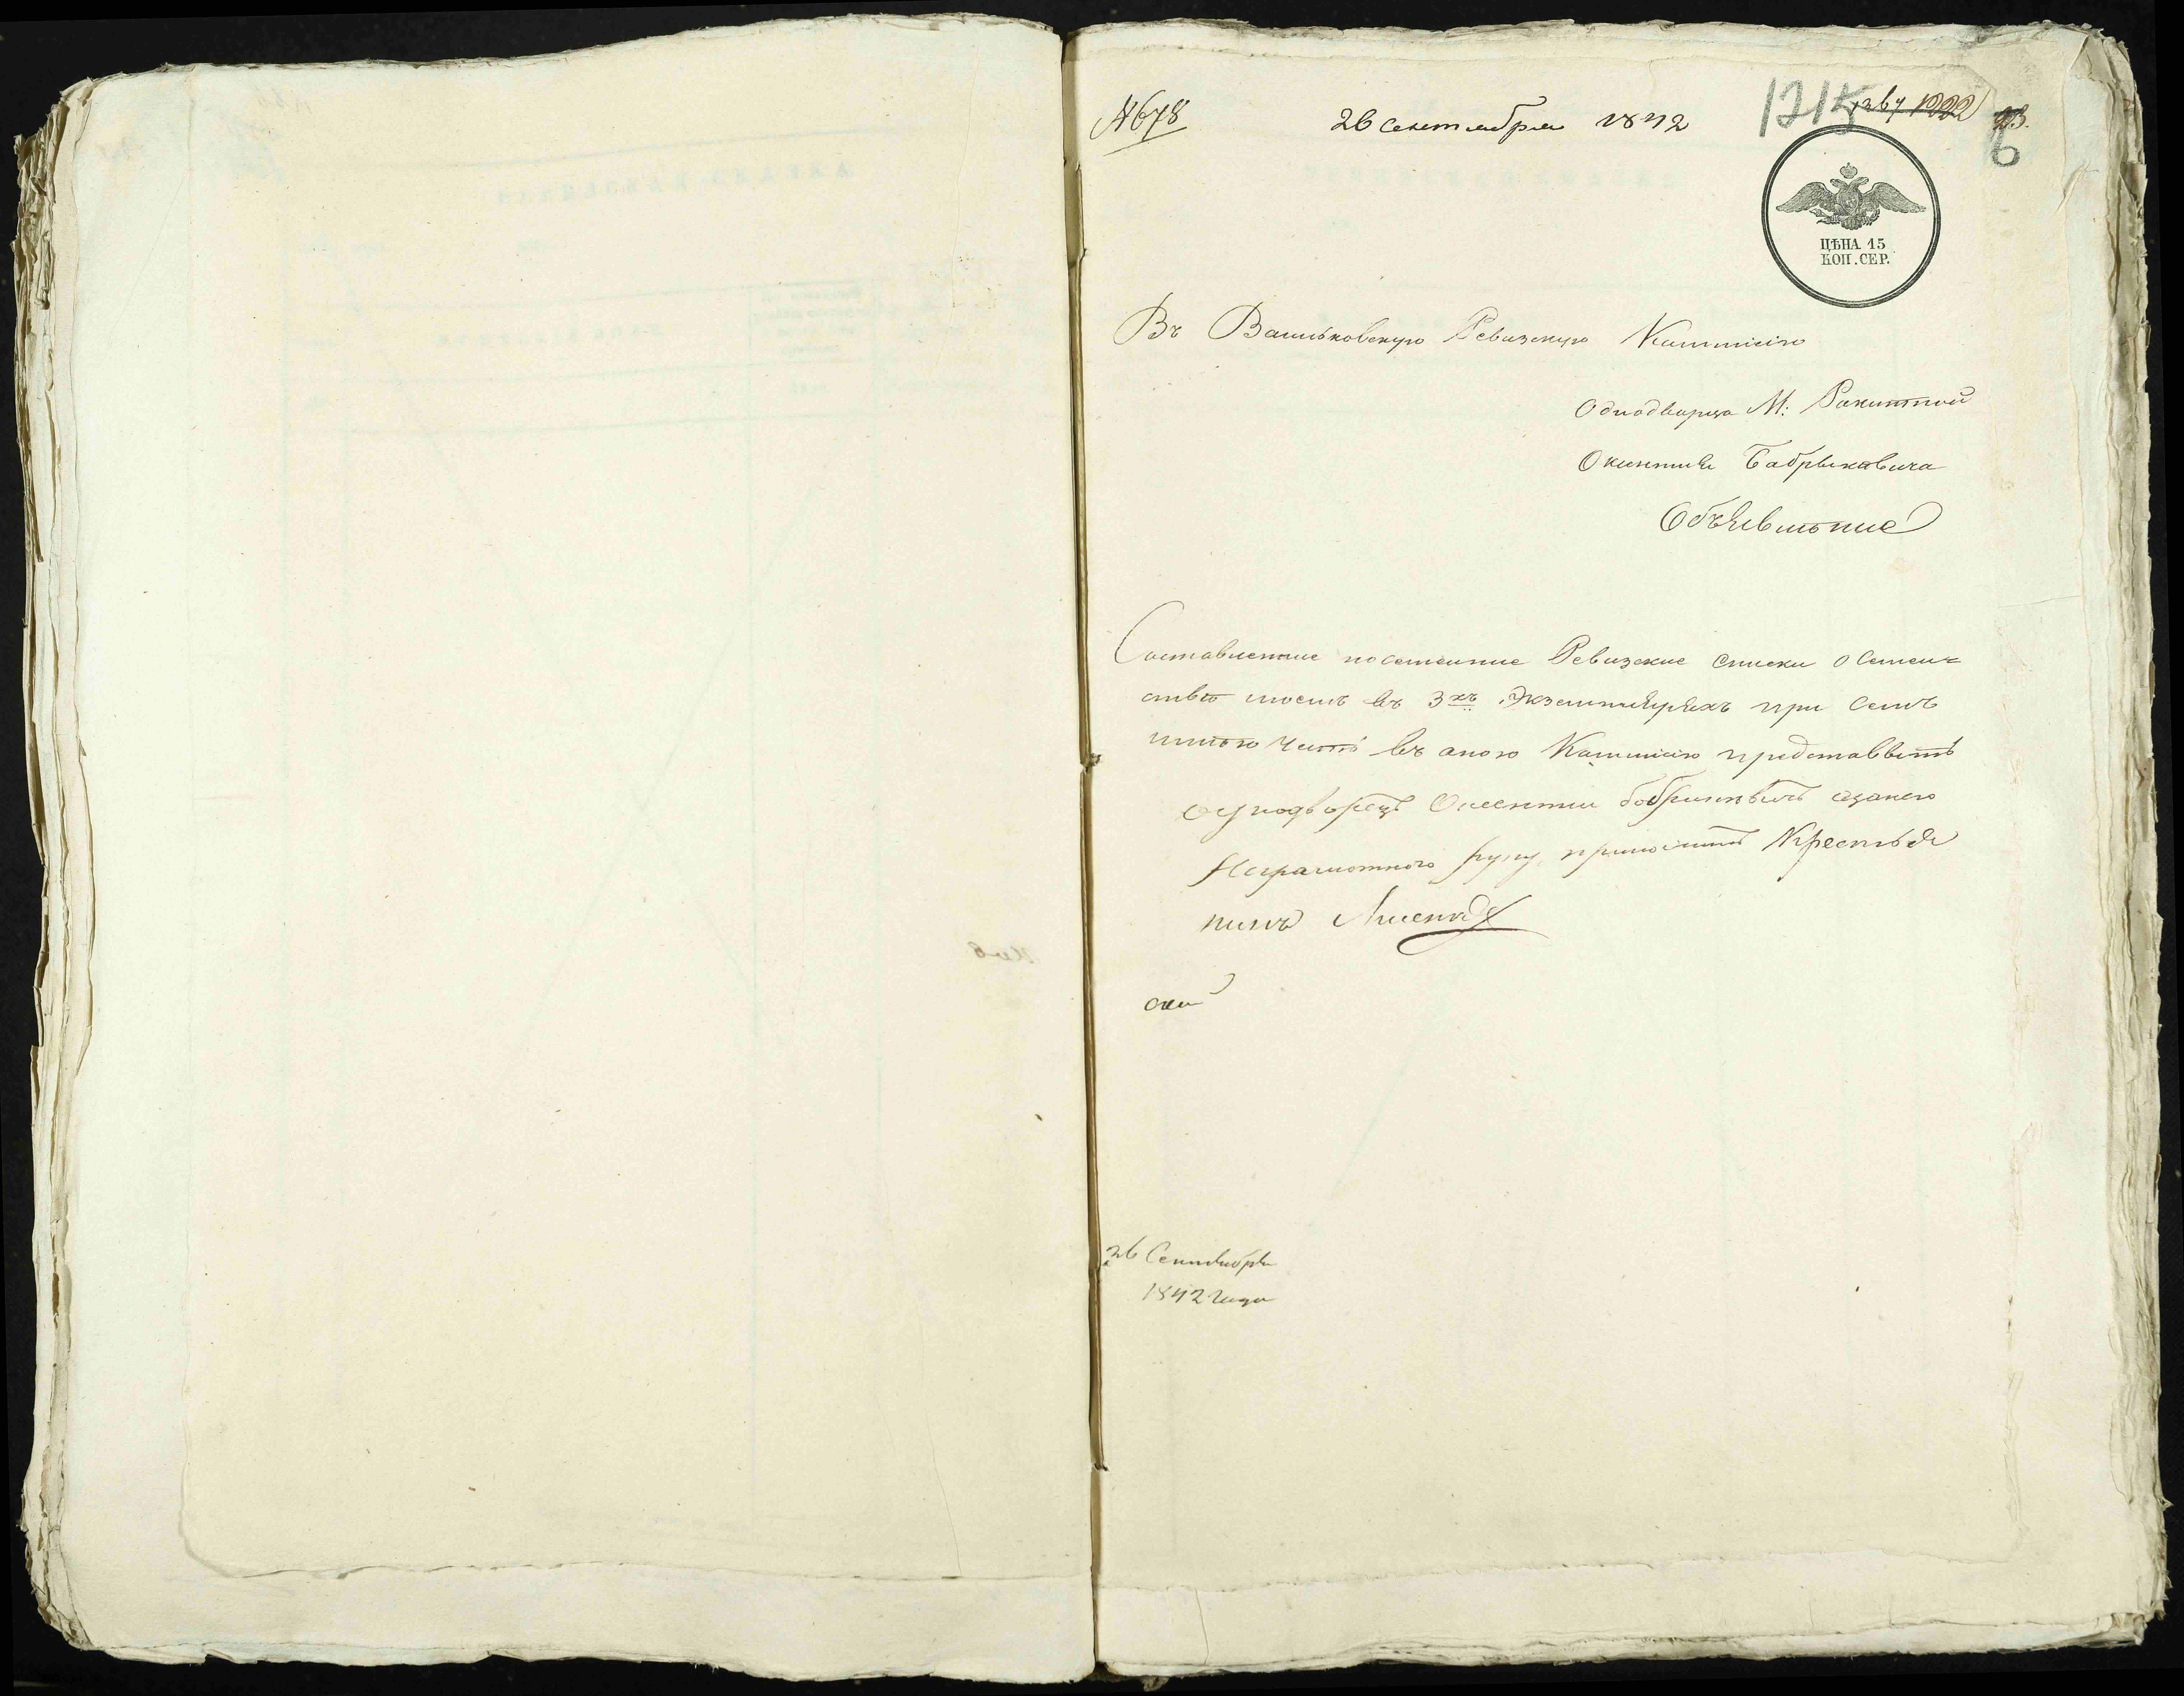 № 678
26 сентября 1842
1215
ЦѢНА 15
КОП. СЕР.
Въ Васильковскую Ревизскую Коммисію
Однодворца М: Ракитной
Окинтия Бобрыкавича
Объявление
Составленние посеменние Ревизские списки о Семей-
ствѣ моемъ въ 3хъ Экземплярахъ при семъ
имѣю честь въ оною Коммисію представить
однодворецъ
неграмотного руку приложилъ Крестья
нинъ
26 Сентября
1842 года